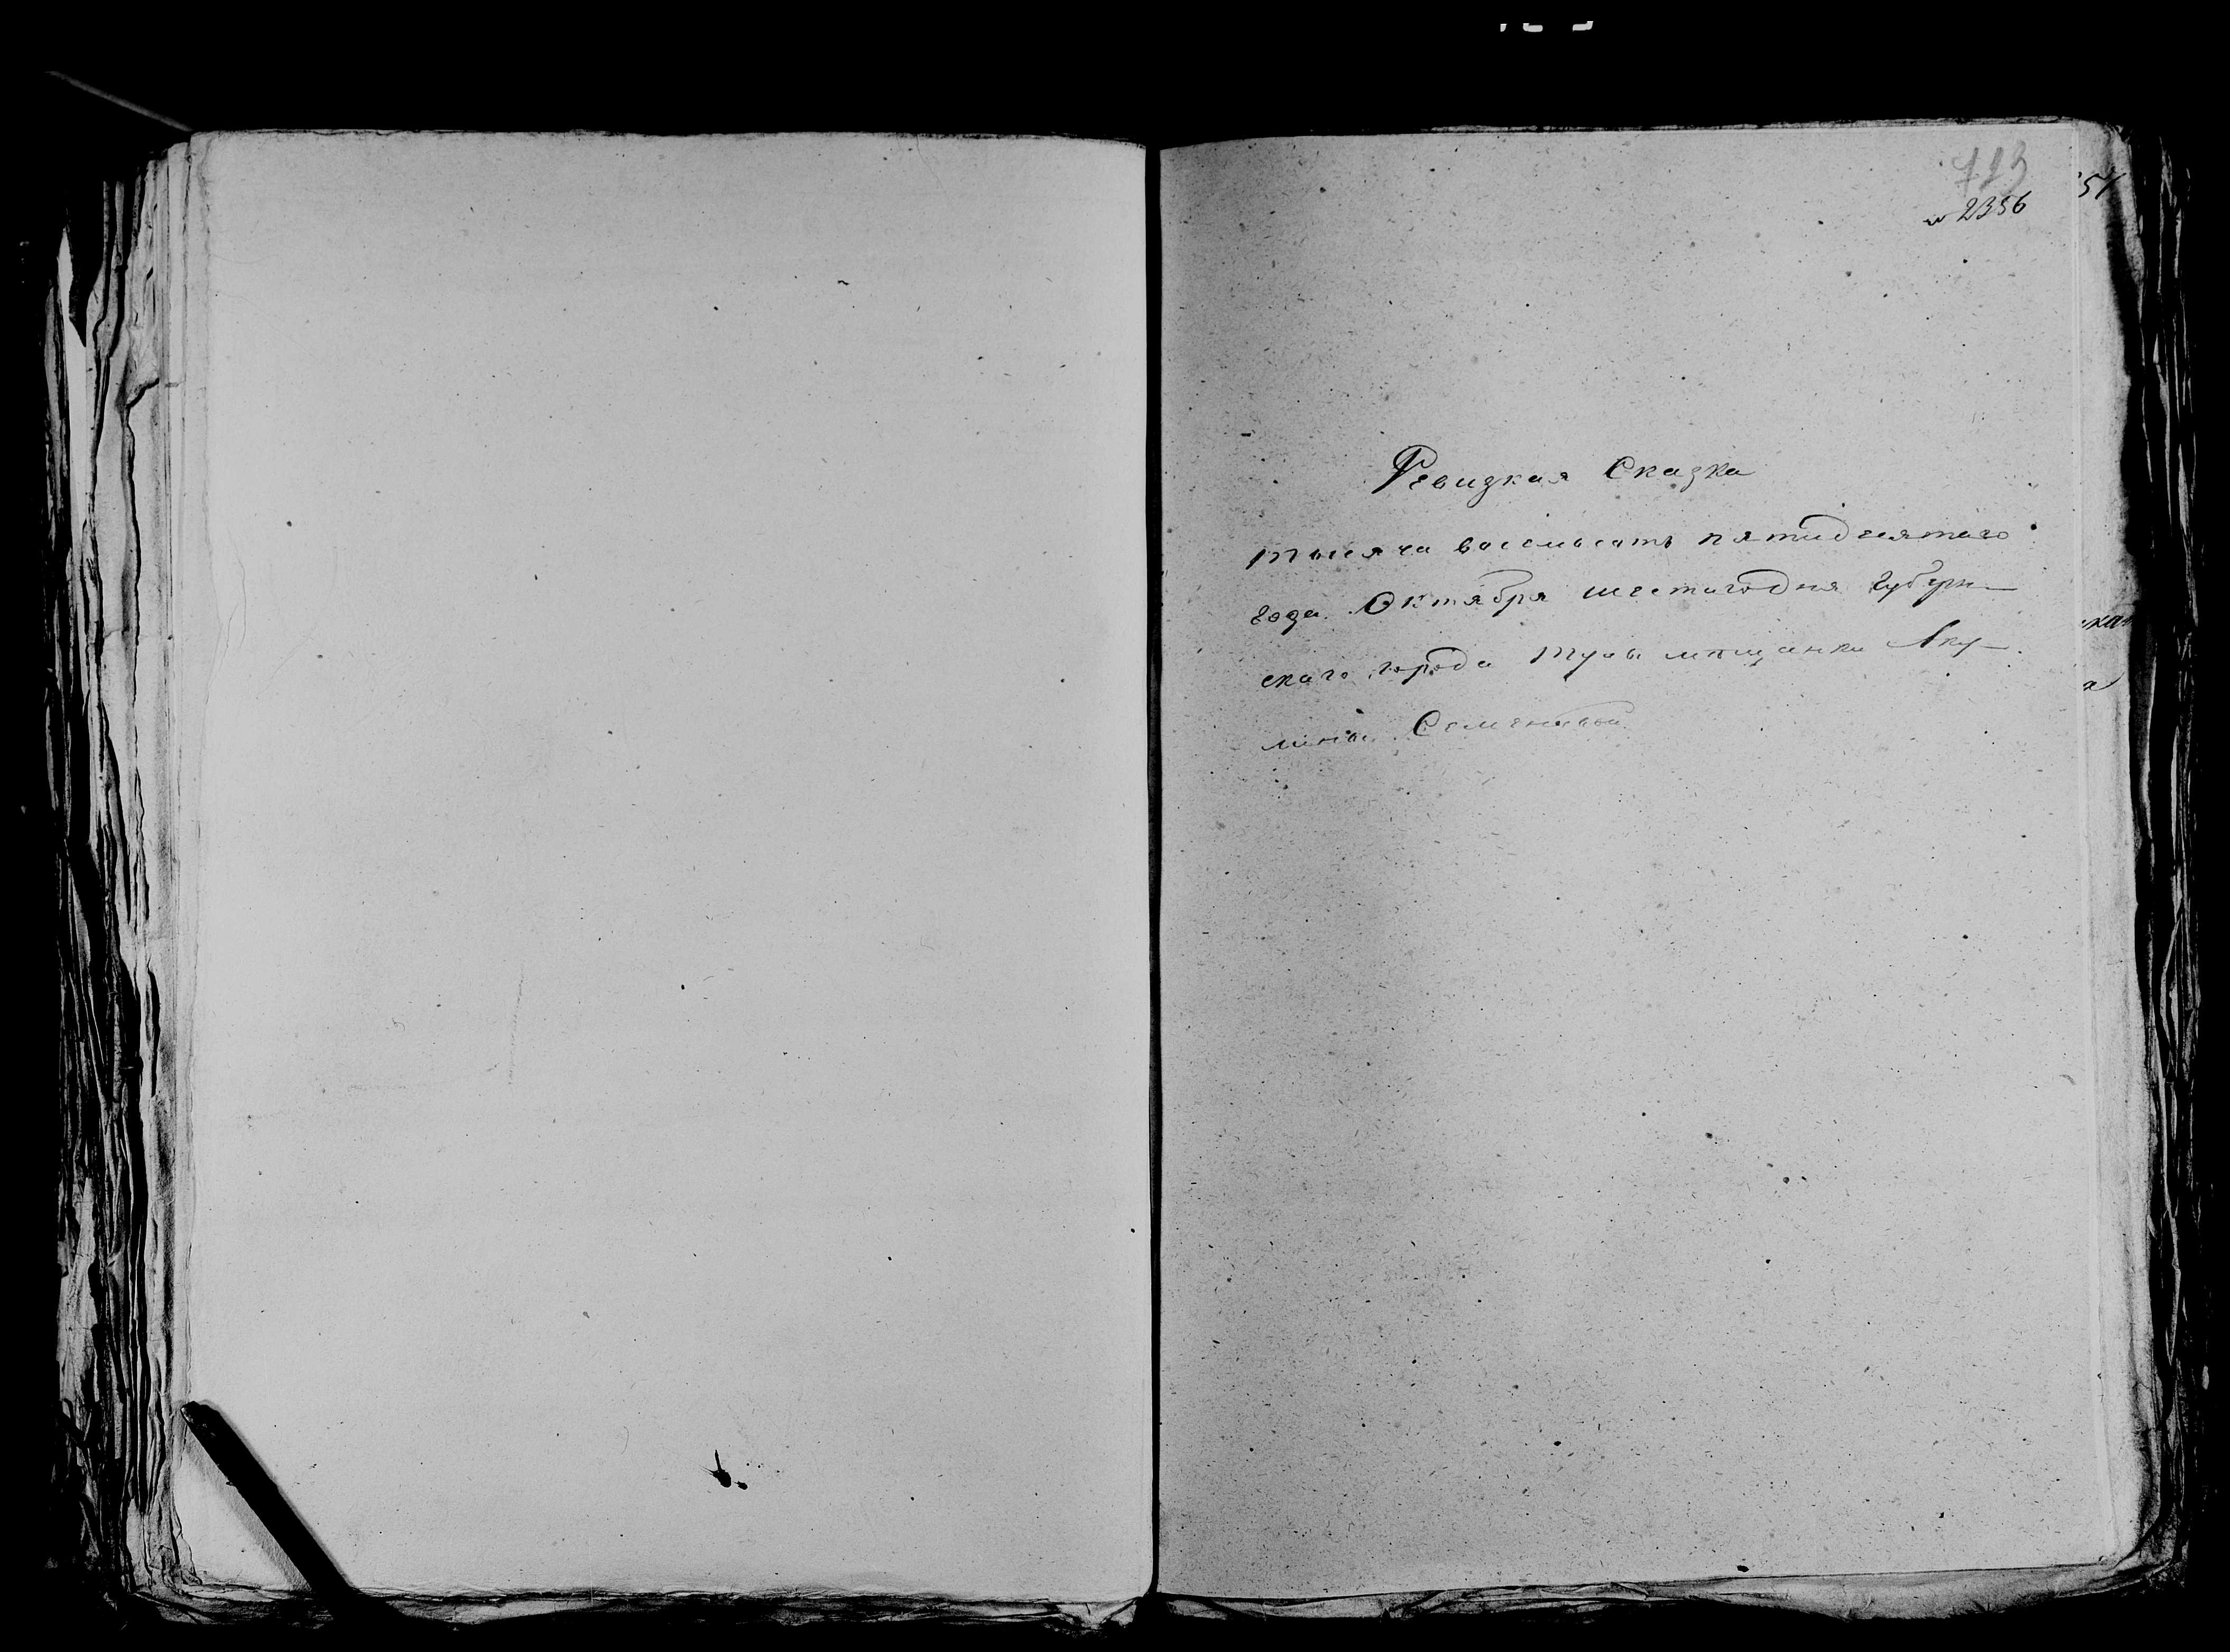 713
№ 2356
Ревизкая Сказка
тысяча восемьсотъ пятидесятаго
года Октября шестагодня Губерн—
скаго города Тулы мѣщанки Аку—
лины Семеновой